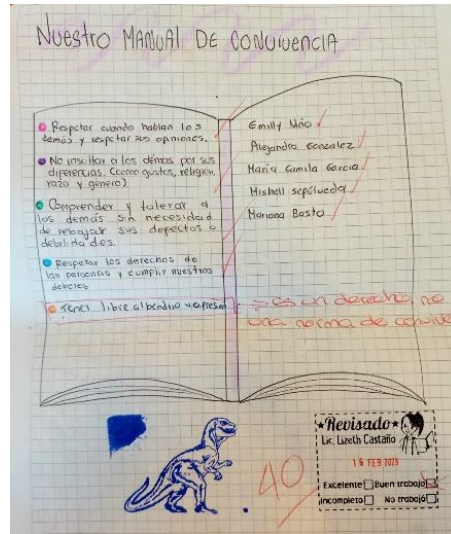 Nuestro MANUAL DE CONVIVENCIA
Respetar cuando hablan los
demás y respetar sus opiniones.
No insultar a los demás por sus
diferencias. (como gustos, religion,
raza y genero)
Comprender y tolerar a
los demás sin necesidad
de rebajar sus defectos o
debilidades.
Respetar los derechos de
las personas y cumplir nuestros
deberes
Tener libre albedrio
Emilly Niño
Alejandra Gonzalez
Maria Camila Garcia
Mishell Sepúlveda
Mariana Basto
es un derecho, no
una norma de convive
40
Revisado
Lic. Lizeth Castaño
16 FEB 2023
Excelente Buen trabajo
Incompleto No trabajó